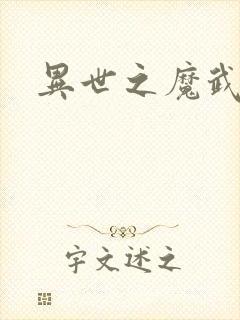 異世之魔武
宇文述之